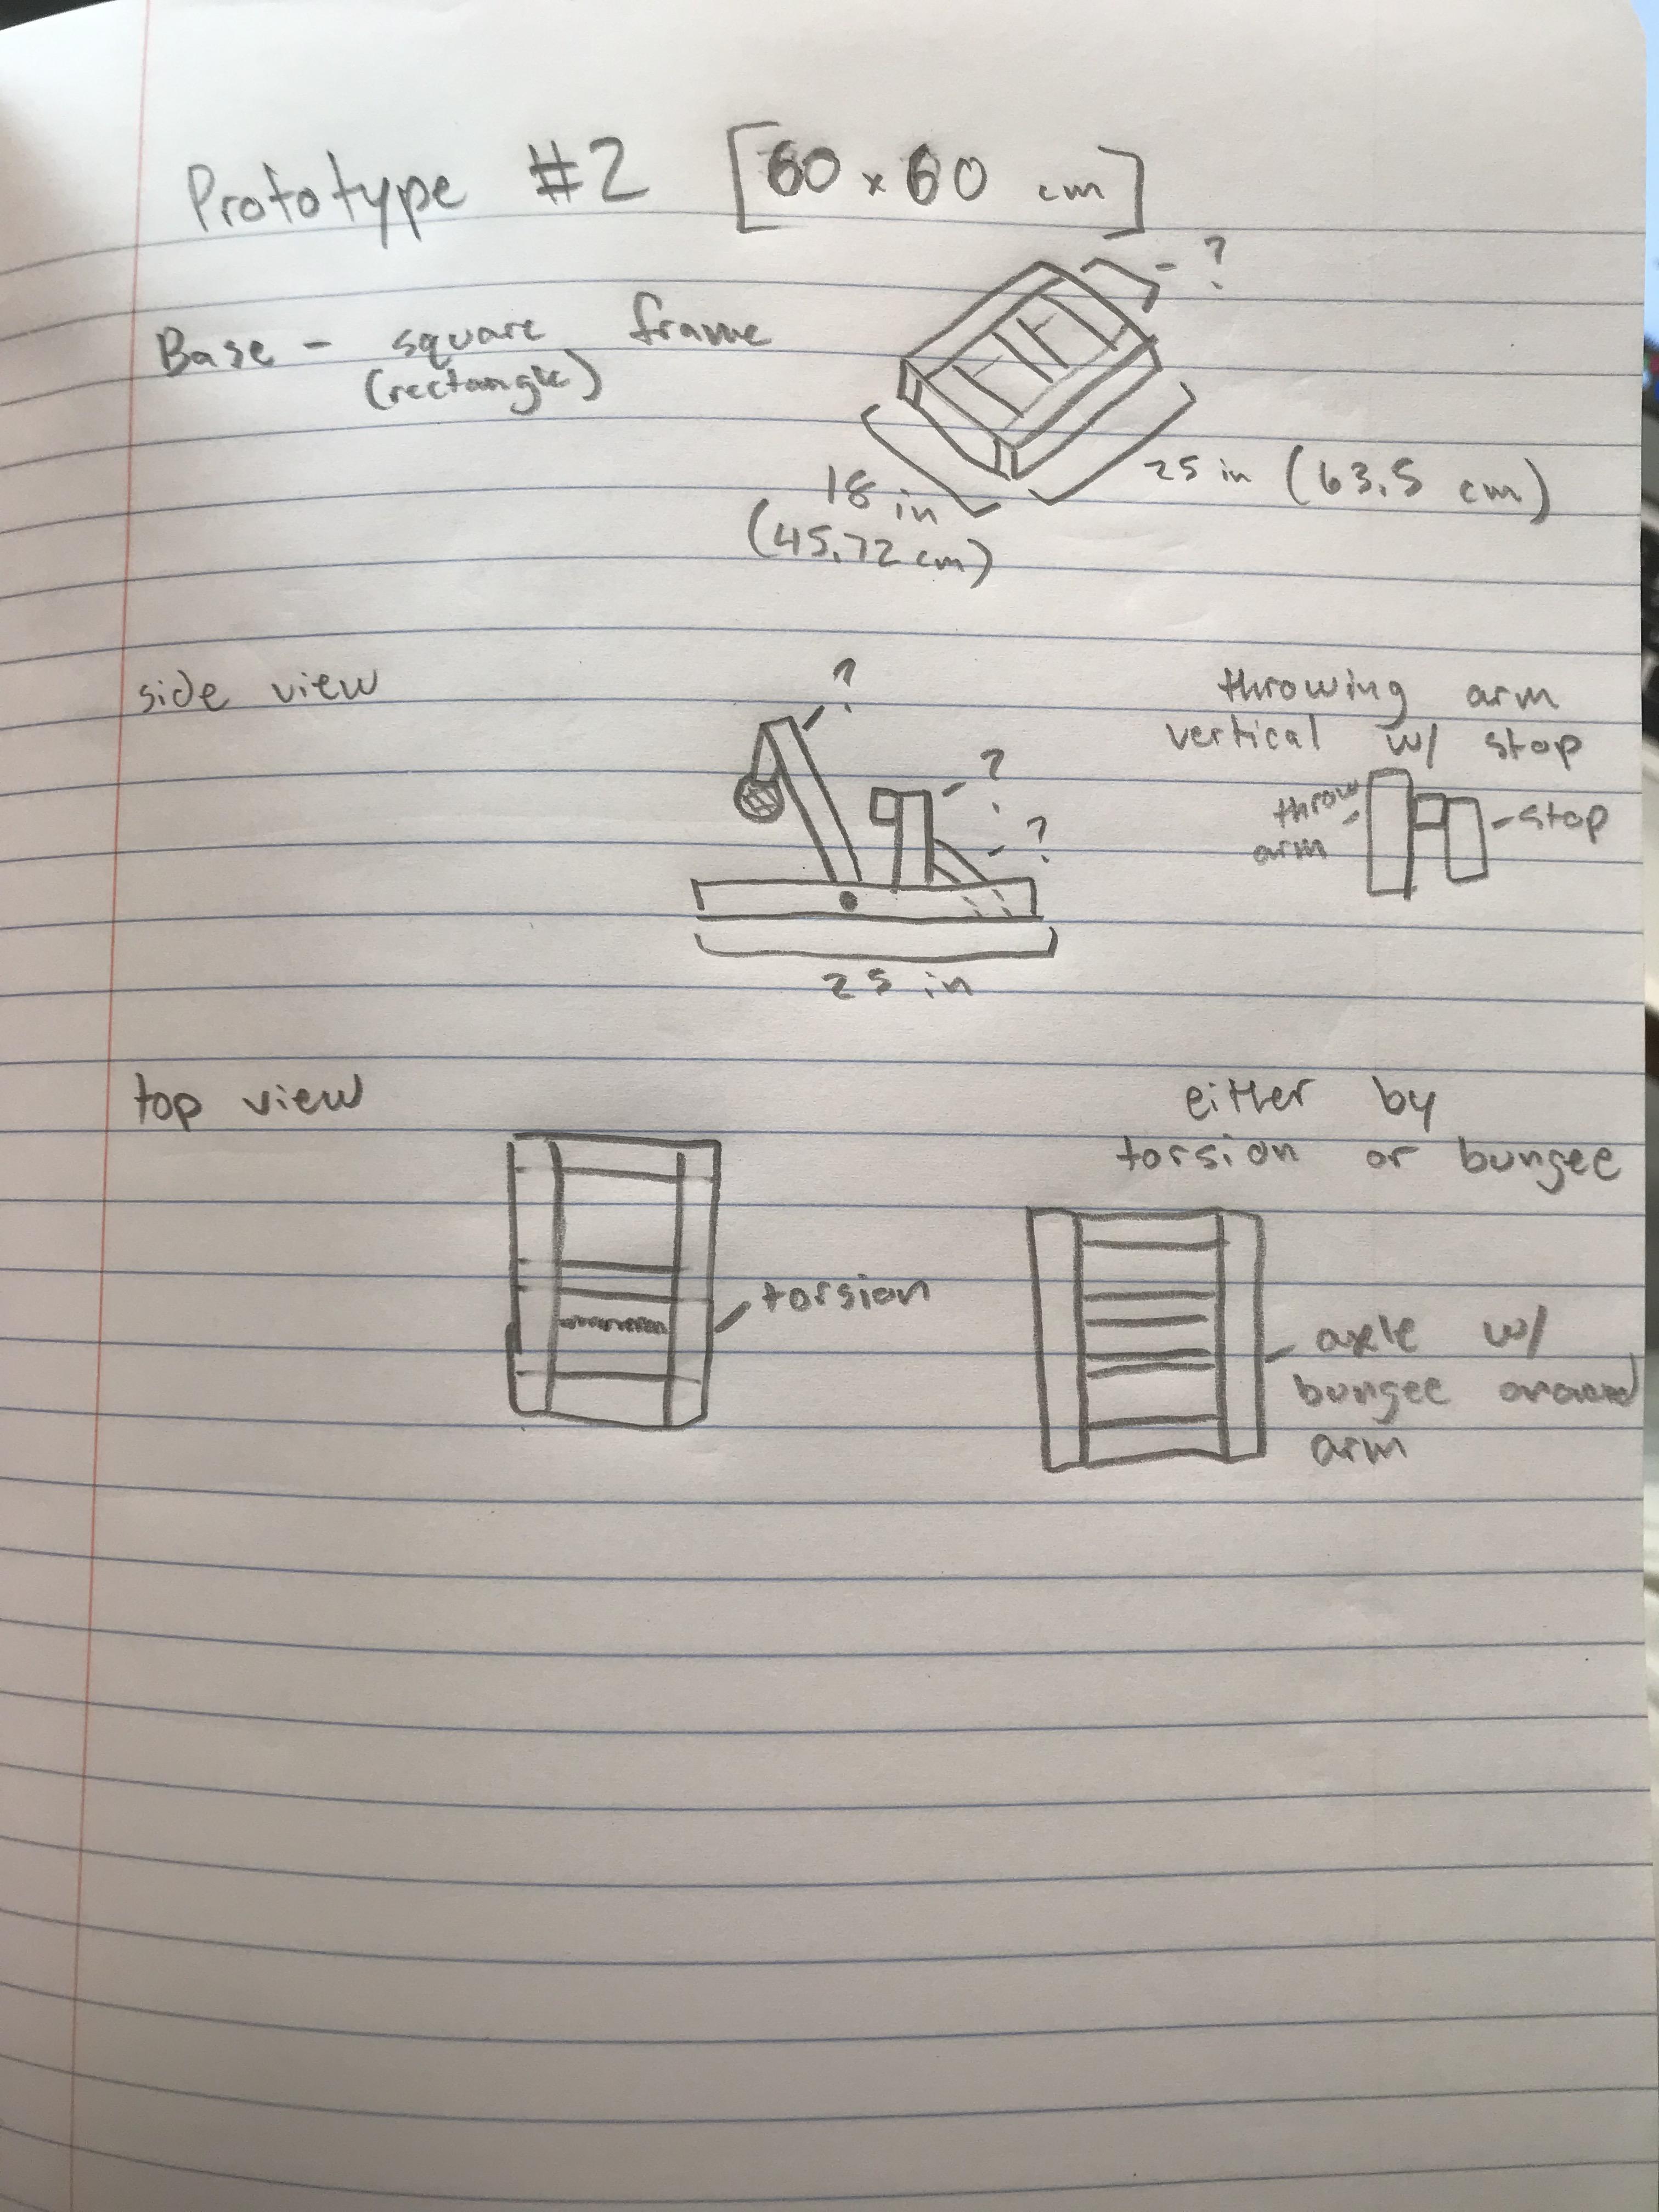 Prototype #2 [60 x 60 cm]
- ?
Base - square frame
(rectangle)
25 in (63.5 cm)
18 in
(45.72 cm)
side view
?
throwing arm
vertical w/ stop
- ?
throw
arm
- stop
- ?
25 in
top view
either by
torsion or bungee
- torsion
- axle w/
bungee around
arm